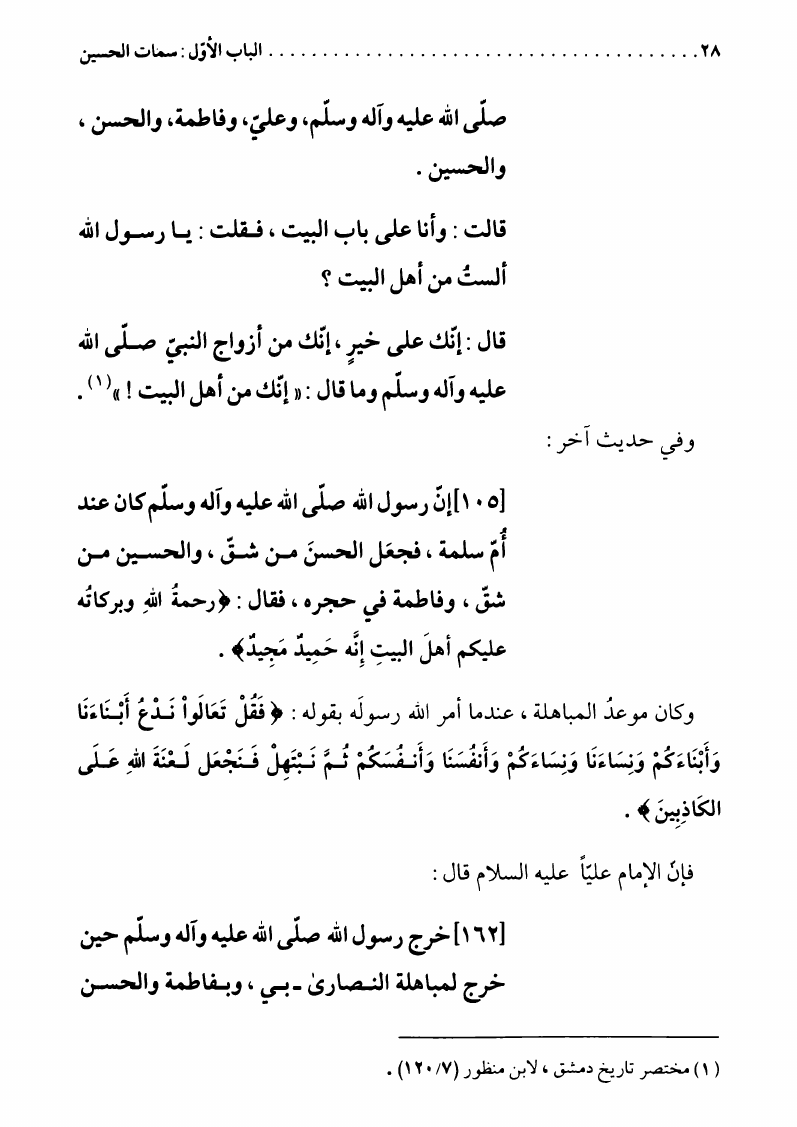 ٢٨ ........................................ الباب الأوّل : سمات الحسين
صلّى الله عليه وآله وسلّم، وعليّ، وفاطمة، والحسن ،
والحسين .
قالت : وأنا على باب البيت ، فـقلت : يـا رسـول الله
ألستُ من أهل البيت ؟
قال : إنّك على خيرٍ ، إنّك من أزواج النبيّ صـلّى الله
عليه وآله وسلّم وما قال : « إنّك من أهل البيت ! »(١) .
وفي حديث آخر :
[١٠٥] إنّ رسول الله صلّى الله عليه وآله وسلّم كان عند
أُمّ سلمة ، فجعَل الحسنَ مـن شـقّ ، والحسـين مـن
شقّ ، وفاطمة في حجره ، فقال : ﴿رحمةُ اللهِ وبركاتُه
عليكم أهلَ البيتِ إِنَّه حَمِيدٌ مَجِيدٌ﴾ .
وكان موعدُ المباهلة ، عندما أمر الله رسولَه بقوله : ﴿ فَقُلْ تَعَالَواْ نَـدْعُ أَبْـنَاءَنَا
وَأَبْنَاءَكُمْ وَنِسَاءَنَا وَنِسَاءَكُمْ وَأَنفُسَنَا وَأَنـفُسَكُمْ ثُـمَّ نَـبْتَهِلْ فَـنَجْعَل لَـعْنَةَ اللهِ عَـلَى
الكَاذِبِينَ ﴾ .
فإنّ الإمام عليّاً عليه السلام قال :
[١٦٢] خرج رسول الله صلّى الله عليه وآله وسلّم حين
خرج لمباهلة النـصارىٰ ـ بـي ، وبـفاطمة والحسـن
(١) مختصر تاريخ دمشق ، لابن منظور (١٢٠/٧) .